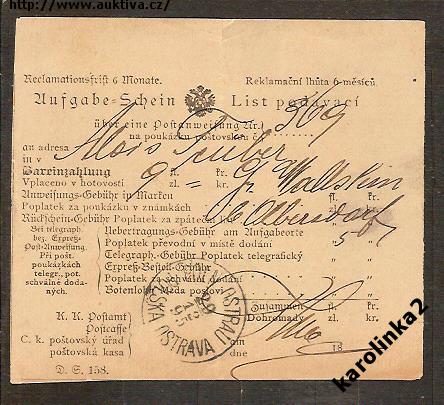 http://www.auktiva.cz/
Reclamationsfrist 6 Monate.
Reklamační lhůta 6 měsíců.
Aufgabe-Schein
List podavací
über eine Postanweisung Nr.
na poukázku poštovskou č.
369
an
adresa
Alois
in
v
Bareinzahlung
Vplaceno v hotovosti
9
fl.
zl.
kr.
Anweisungs-Gebühr in Marken
Poplatek za poukázku v známkách
fl.
zl.
kr.
Rückschein-Gebühr
Poplatek za zpáteční
Olbersdorf
Bei telegraph. bez. Expreß-Post-Anweisung.
Při pošt. poukázkách telegr., pot. schválné dodaných.
Uebertragungs-Gebühr am Aufgabeorte
Poplatek převodní v místě dodání
5
Telegraph.-Gebühr Poplatek telegrafický
Expreß-Bestell-Gebühr
Poplatek za schvální dodání
Botenlohn Mzda poslovi
Zusammen
Dohromady
fl.
zl.
kr.
K. K. Postamt
Postcasse
C. k. poštovský úřad
poštovská kasa
am
dne
18
D. S. 158.
OSTRAU
OSTRAVA
karolinka2